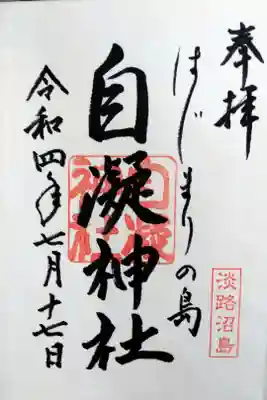 奉拝
はじまりの島
自凝神社
自凝神社
令和四年七月十七日
淡路沼島